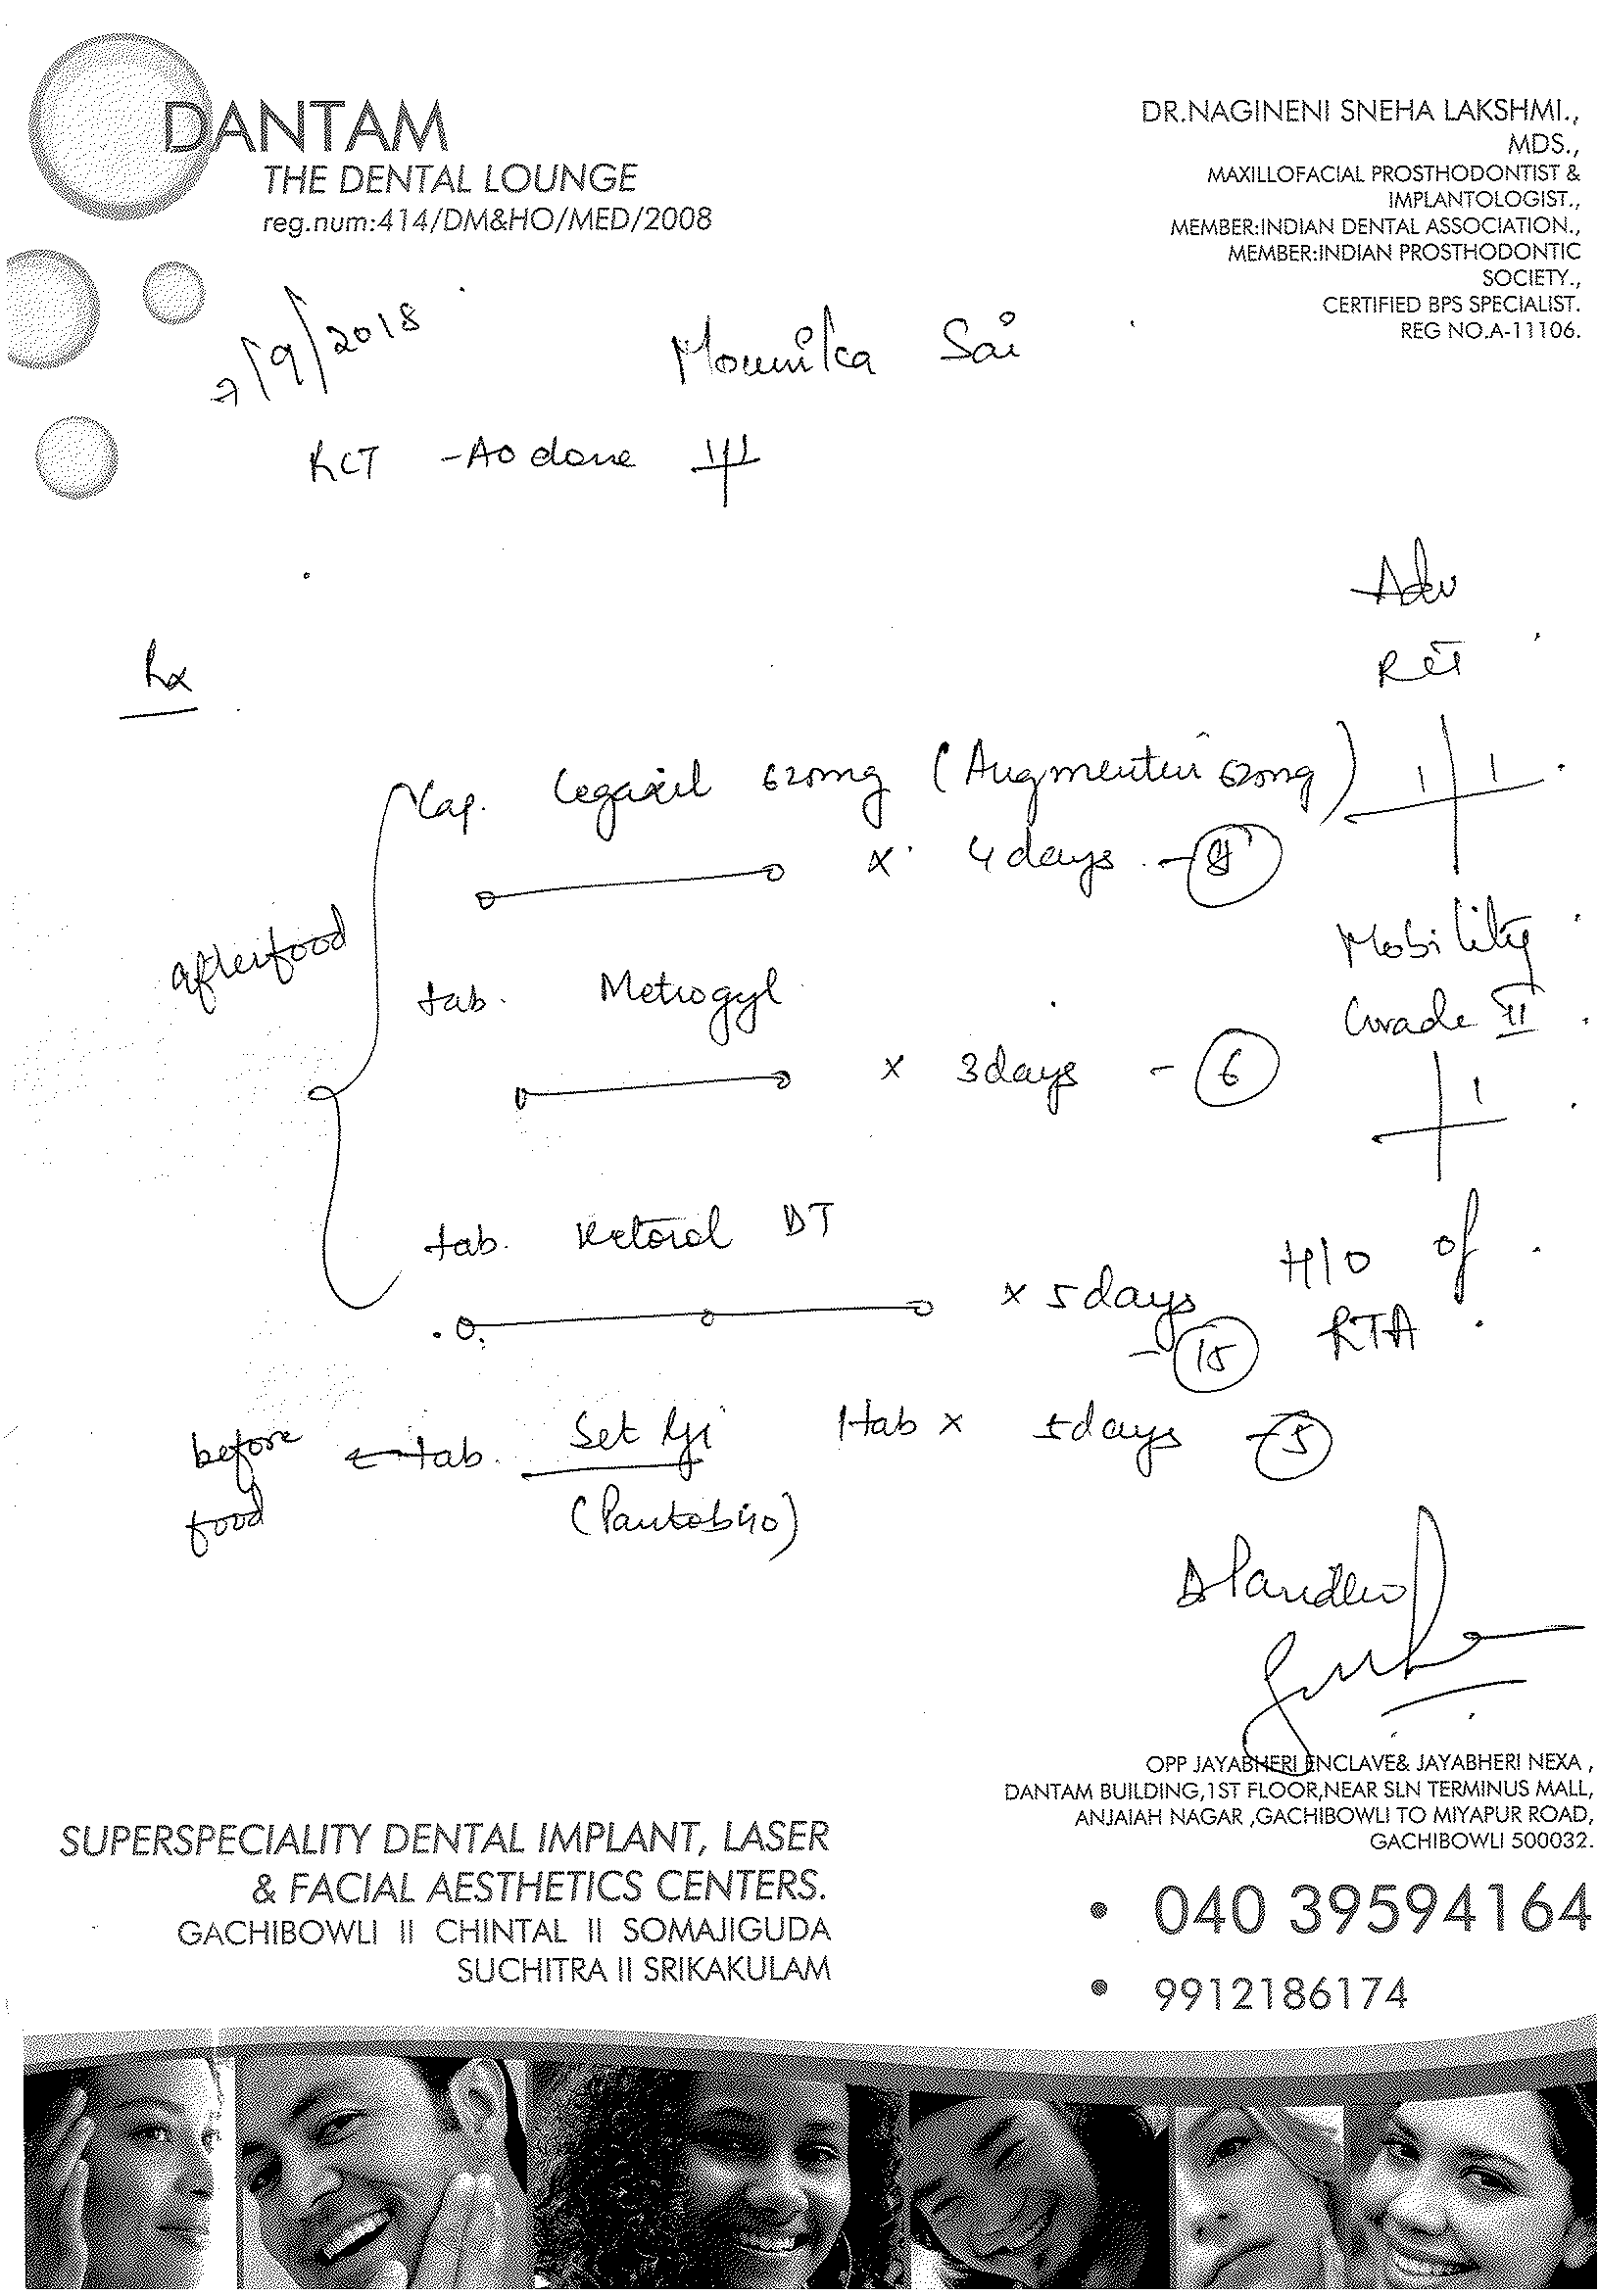 DANTAM
THE DENTAL LOUNGE
reg.num:414/DM&HO/MED/2008
DR.NAGINENI SNEHA LAKSHMI.,
MDS.,
MAXILLOFACIAL PROSTHODONTIST &
IMPLANTOLOGIST.,
MEMBER:INDIAN DENTAL ASSOCIATION.,
MEMBER:INDIAN PROSTHODONTIC
SOCIETY.,
CERTIFIED BPS SPECIALIST.
REG NO.A-11106.
7/9/2018
Mounika Sai
RCT - AO done 1|1
Adv
RCT
1|1
Rx
Cap. 625mg (Augmentin 625mg)
x 4 days - 8
afterfood
tab. Metrogyl
x 3 days - 6
Mobility
Grade II
|1
tab. Ketorol DT
x 5 days
- 15
H/O of
RTA
before food
← tab. 1 tab x 5 days - 5
(Pantab 40)
OPP JAYABHERI ENCLAVE& JAYABHERI NEXA ,
DANTAM BUILDING,1ST FLOOR,NEAR SLN TERMINUS MALL,
ANJAIAH NAGAR ,GACHIBOWLI TO MIYAPUR ROAD,
GACHIBOWLI 500032.
SUPERSPECIALITY DENTAL IMPLANT, LASER
& FACIAL AESTHETICS CENTERS.
GACHIBOWLI II CHINTAL II SOMAJIGUDA
SUCHITRA II SRIKAKULAM
• 040 39594164
• 9912186174